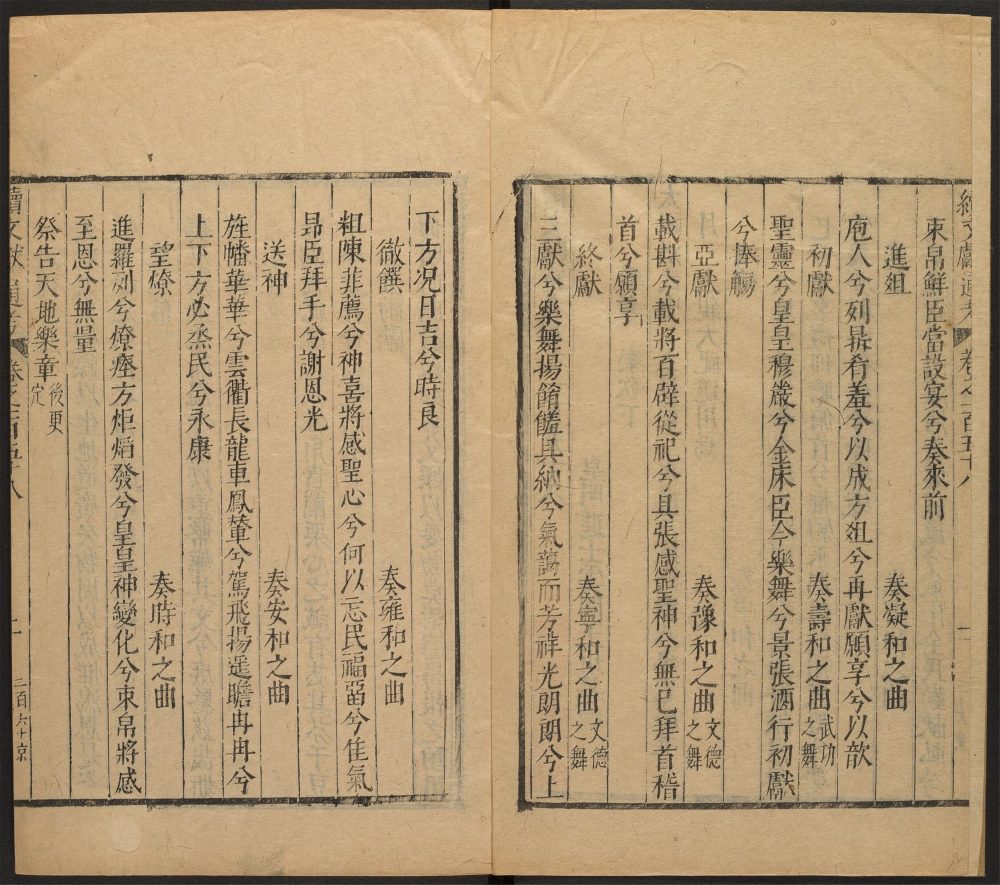 束帛鮮臣當設宴兮奏來前
進俎　奏凝和之曲
庖人兮列鼎肴羞兮以成方俎兮再獻願享兮以歆
初獻　奏壽和之曲武功之舞
聖靈兮皇皇穆嚴兮金床臣令樂舞兮景張酒行初獻
兮捧觴
亞獻　奏豫和之曲文德之舞
載斟兮載將百辟從祀兮具張感聖神兮無已拜首稽
首兮願享
終獻　奏寧和之曲文德之舞
三獻兮樂舞揚餚饈具納兮氣藹而芳祥光朗朗兮上
下方況日吉兮時良
徹饌　奏雍和之曲
粗陳菲薦兮神喜將感聖心兮何以忘民福留兮佳氣
昂臣拜手兮謝恩光
送神　奏安和之曲
旌幡華華兮雲衢長龍車鳳輦兮駕飛揚遙瞻冉冉兮
上下方必烝民兮永康
望燎　奏時和之曲
進羅列兮燎瘞方炬焰發兮皇皇神變化兮束帛將感
至恩兮無量
祭告天地樂章後更定
續文獻通考　卷之一百五十八　二　三百六十京